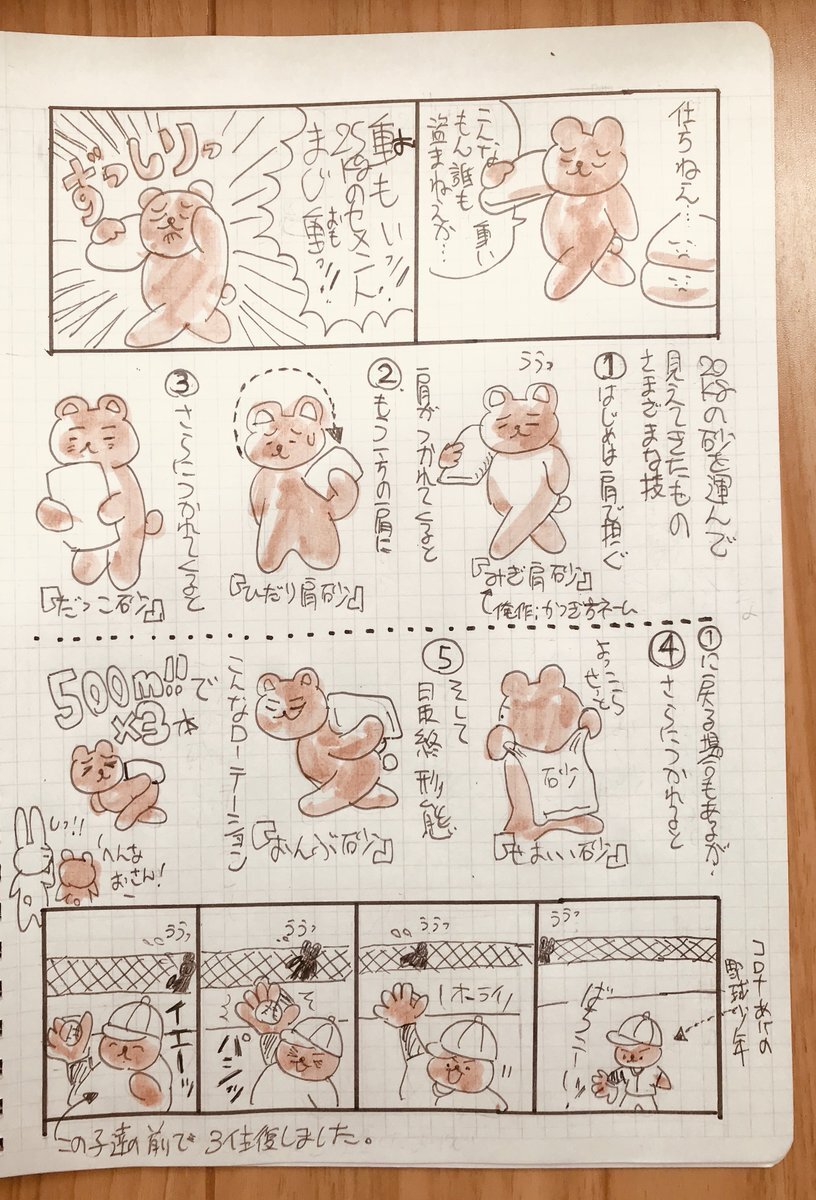 仕方ねえ…
こんな
もん誰も
盗まねえが…
重い
重もいッ!!
25kgのセメント
まじ重もっ!!
ずっしりッ
20kgの砂を運んで
見えてきたもの
さまざまな技
①はじめは肩で担ぐ
ううっ
『みぎ肩砂』
俺作;かつぎ方ネーム
肩がつかれてくると
②もう一方の肩に
『ひだり肩砂』
③さらにつかれてくると
『だっこ砂』
①に戻る場合もあるが、
④さらにつかれると
よっこら
せーっと
砂
『せおい砂』
⑤そして
最終形態
『おんぶ砂』
こんなローテーション
で
500m!!
×3本
しっ!!
へんな
おさん!
コロナあけの
野球少年
ううっ
ばっこーい!
ううっ
オーライ
ううっ
パシッ
ううっ
イエーッ
この子達の前で3往復しました。